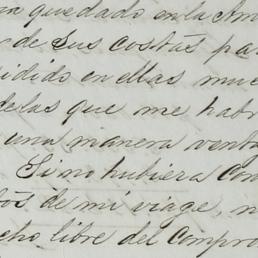 quedado en la Am
de sus costas pa
dido en ellas muc
de las que me habr
una manera vent
Si no hubiera con
tos de mi viage, n
cho libre del compro